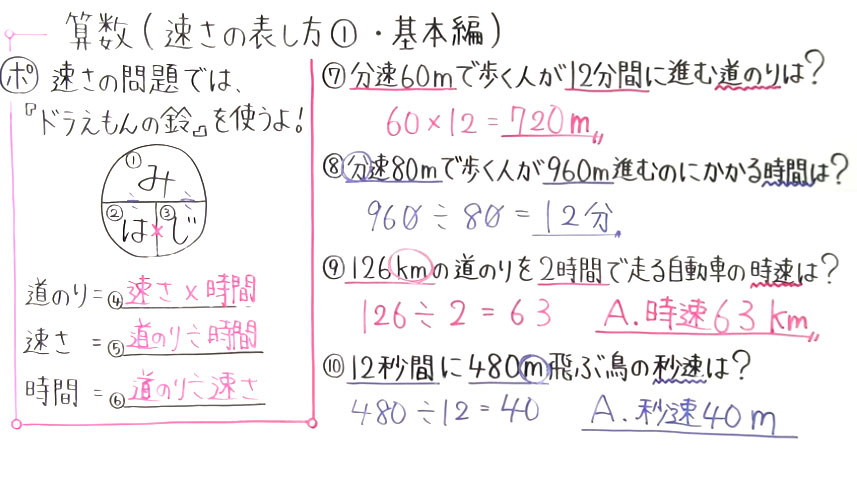 算数(速さの表し方①・基本編)
ポ 速さの問題では、
『ドラえもんの鈴』を使うよ!
① み
② は × ③ じ
道のり=④速さ×時間
速さ =⑤道のり÷時間
時間 =⑥道のり÷速さ
⑦分速60mで歩く人が12分間に進む道のりは?
60×12=720m
⑧分速80mで歩く人が960m進むのにかかる時間は?
960÷80=12分
⑨126kmの道のりを2時間で走る自動車の時速は?
126÷2=63 A.時速63km
⑩12秒間に480m飛ぶ鳥の秒速は?
480÷12=40 A.秒速40m